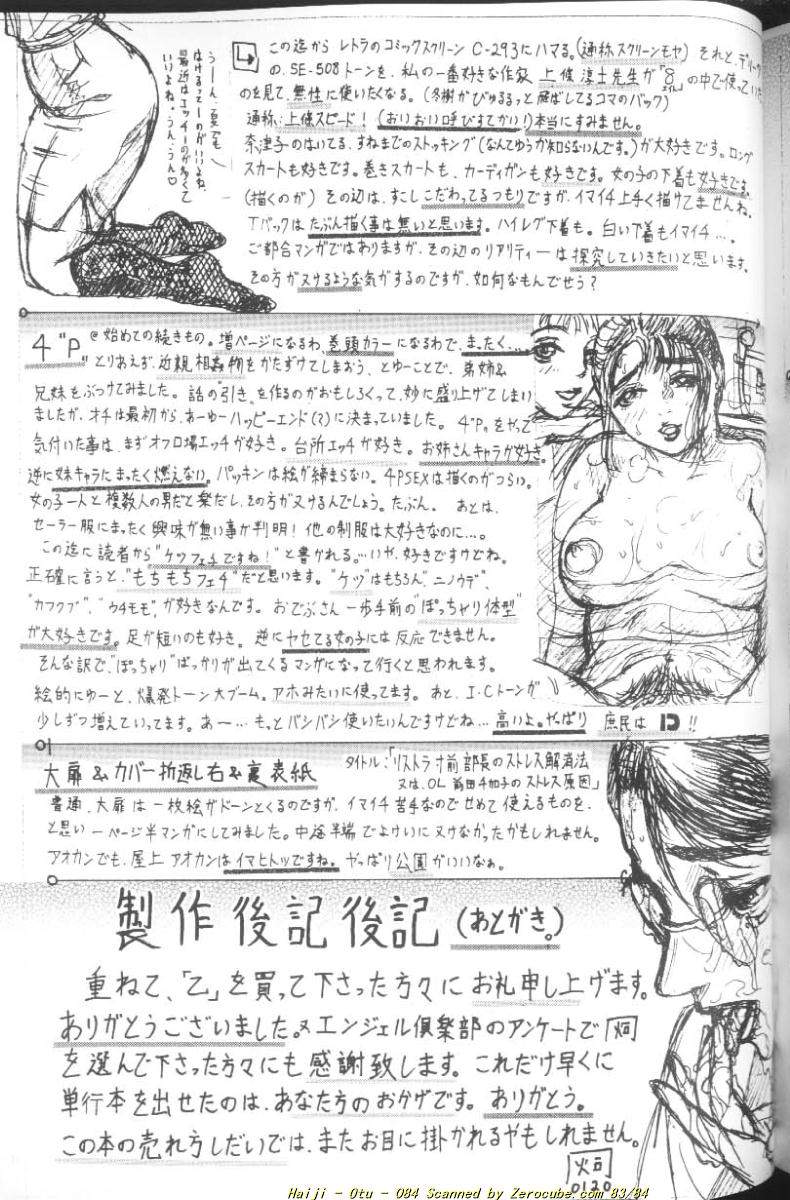 この迄から レトラのコミックスクリーン C-293にハマる。(通称スクリーンモヤ) それと、デリータ
の、SE-508トーンを、私の一番好きな作家 上條淳士先生が「8」の中で使っていた
のを見て、無性に使いたくなる。(冬樹がびゅるるっと飛ばしてるコマのバック)
通称:上條スピード! (おいおい呼びすてかい!) 本当にすみません。
奈津子のはいてる、すねまでのストッキング(なんてゆうか知らないんです。)が大好きです。ロング
スカートも好きです。巻きスカートも、カーディガンも好きです。女の子の下着も好きです。
(描くのが) その辺は、すこしこだわってるつもりですが、イマイチ上手く描けてませんね。
Tバックはたぶん描く事は無いと思います。ハイレグ下着も。白い下着もイマイチ…。
ご都合マンガではありますが、その辺のリアリティーは探究していきたいと思います。
その方がヌけるような気がするのですが、如何なもんでせう?
うーん、夏でも
はけるってーのがいいよね、
最近はエッチーのが多くて
いいよね。うん、うん♡
4"P"
@始めての続きもの。増ページになるわ、巻頭カラーになるわで、まったく…
とりあえず、近親相姦物をかたずけてしまおう、とゆーことで、弟姉&
兄妹をぶつけてみました。話の"引き"を作るのがおもしろくって、妙に盛り上げてしまい
ましたが、オチは最初から、あーゆーハッピーエンド(?)に決まっていました。4"P"をやって
気付いた事は、まずオフロ場エッチが好き。台所エッチが好き。お姉さんキャラが好き。
逆に妹キャラにまったく燃えない。パッキンは絵が締まらない。4PSEXは描くのがつらい。
女の子一人と複数人の男だと楽だし、その方がヌけるんでしょう。たぶん。 あとは、
セーラー服にまったく興味が無い事が判明! 他の制服は大好きなのに…。
この迄に読者から"ケツフェチですね!"と書かれる。…いや、好きですけどね。
正確に言うと、"もちもちフェチ"だと思います。"ケツ"はもちろん、"ニノウデ"、
"カフクブ"、"ウチモモ"、が好きなんです。おでぶさん一歩手前の"ぽっちゃり体型"
が大好きです。足が短いのも好き。逆にヤセてる女の子には反応できません。
そんな訳で、"ぽっちゃり"ばっかりが出てくるマンガになって行くと思われます。
絵的にゆーと、爆発トーン大ブーム。アホみたいに使ってます。あと、I・Cトーンが
少しずつ増えていってます。あー…もっとバシバシ使いたいんですけどね…高いよ。やっぱり 庶民は !!
01
大扉&カバー折返し右&裏表紙
タイトル:「リストラ寸前部長のストレス解消法
又は、OL 前田千加子のストレス原因」
普通、大扉は一枚絵がドーンとくるのですが、イマイチ苦手なのでせめて使えるものを、
と思い一ページ半マンガにしてみました。中途半端でよけいにヌけなかったかもしれません。
アオカンでも、屋上アオカンはイマヒトツですね。やっぱり公園がいいなぁ。
製作後記後記 (あとがき。)
重ねて、「乙」を買って下さった方々にお礼申し上げます。
ありがとうございました。又エンジェル倶楽部のアンケートで
を選んで下さった方々にも感謝致します。これだけ早くに
単行本を出せたのは、あなた方のおかげです。ありがとう。
この本の売れ方しだいでは、またお目に掛かれるやもしれません。
0120
Haiji - Otu - 084 Scanned by Zerocube.com 83/84